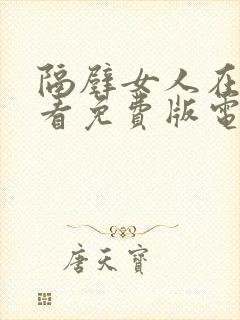 隔壁女人在
看免費版電
唐天寶